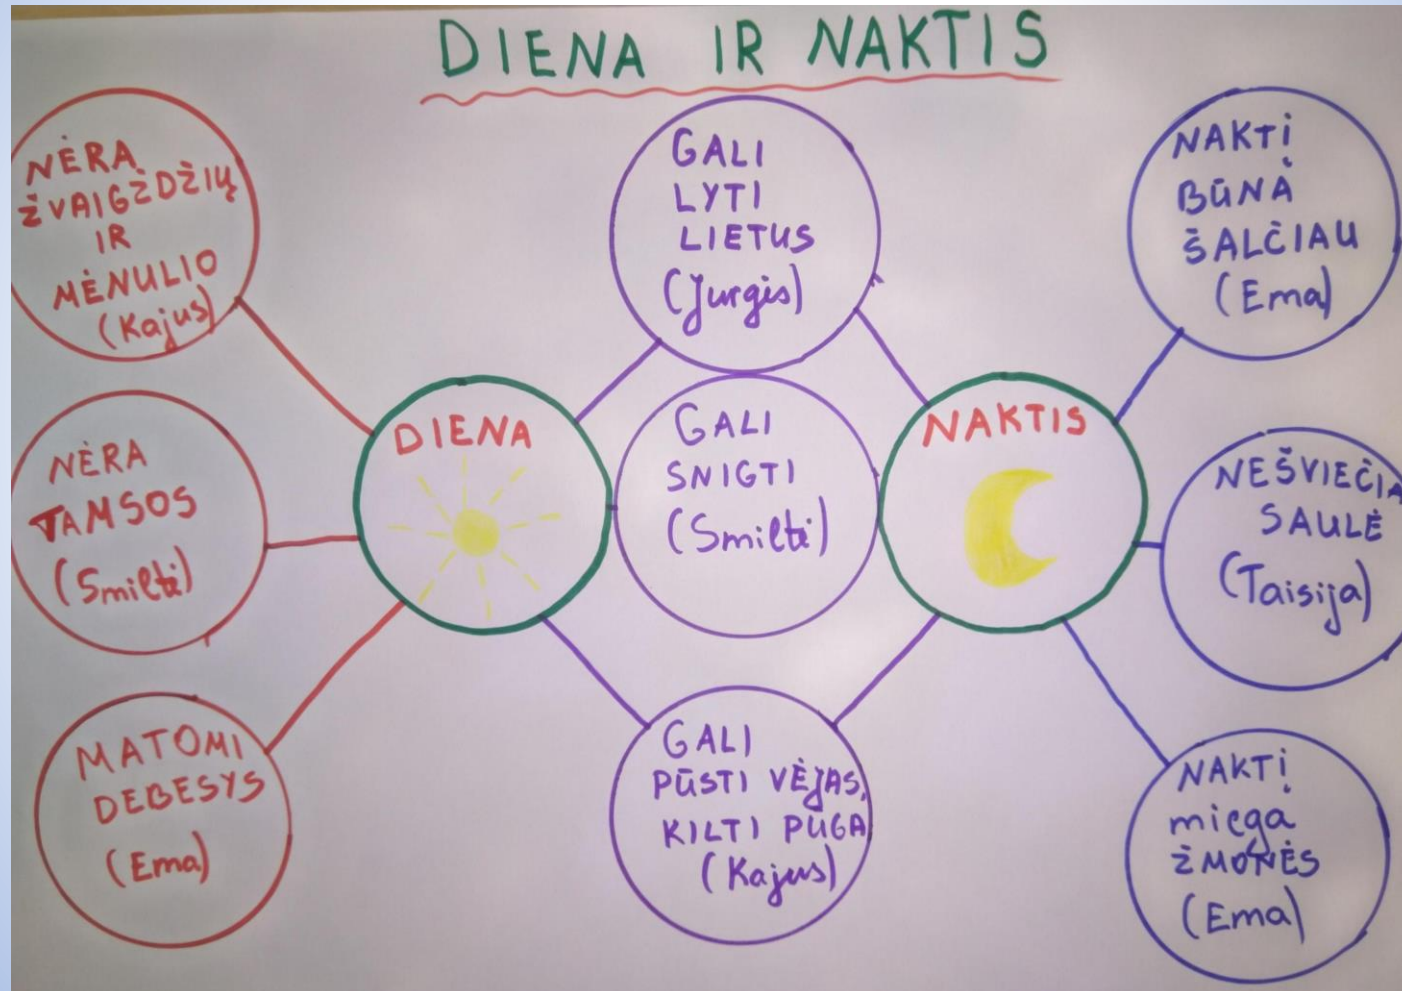 DIENA IR NAKTIS
NĖRA
ŽVAIGŽDŽIŲ
IR
MĖNULIO
(Kajus)
NĖRA
TAMSOS
(Smiltė)
MATOMI
DEBESYS
(Ema)
DIENA
GALI
LYTI
LIETUS
(Jurgis)
GALI
SNIGTI
(Smiltė)
GALI
PŪSTI VĖJAS,
KILTI PŪGA
(Kajus)
NAKTIS
NAKTĮ
BŪNA
ŠALČIAU
(Ema)
NEŠVIEČIA
SAULĖ
(Taisija)
NAKTĮ
miega
ŽMONĖS
(Ema)